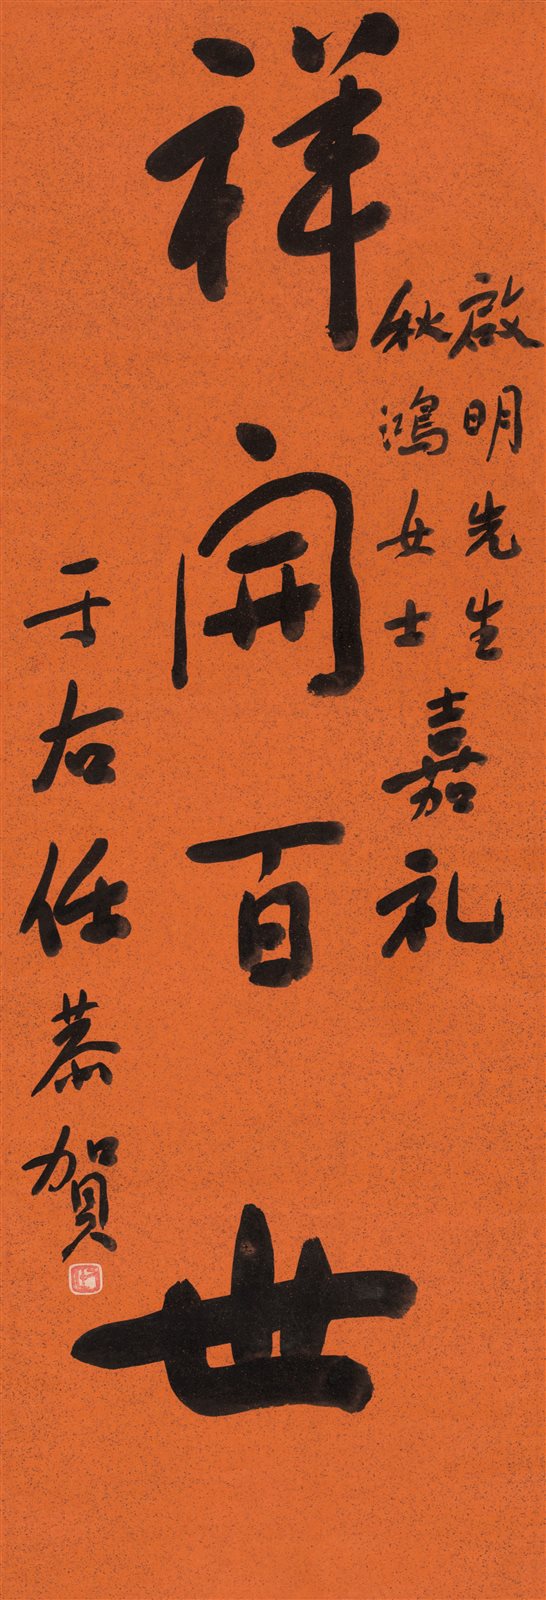 啟明先生
秋鴻女士
嘉礼
祥開百世
于右任恭賀